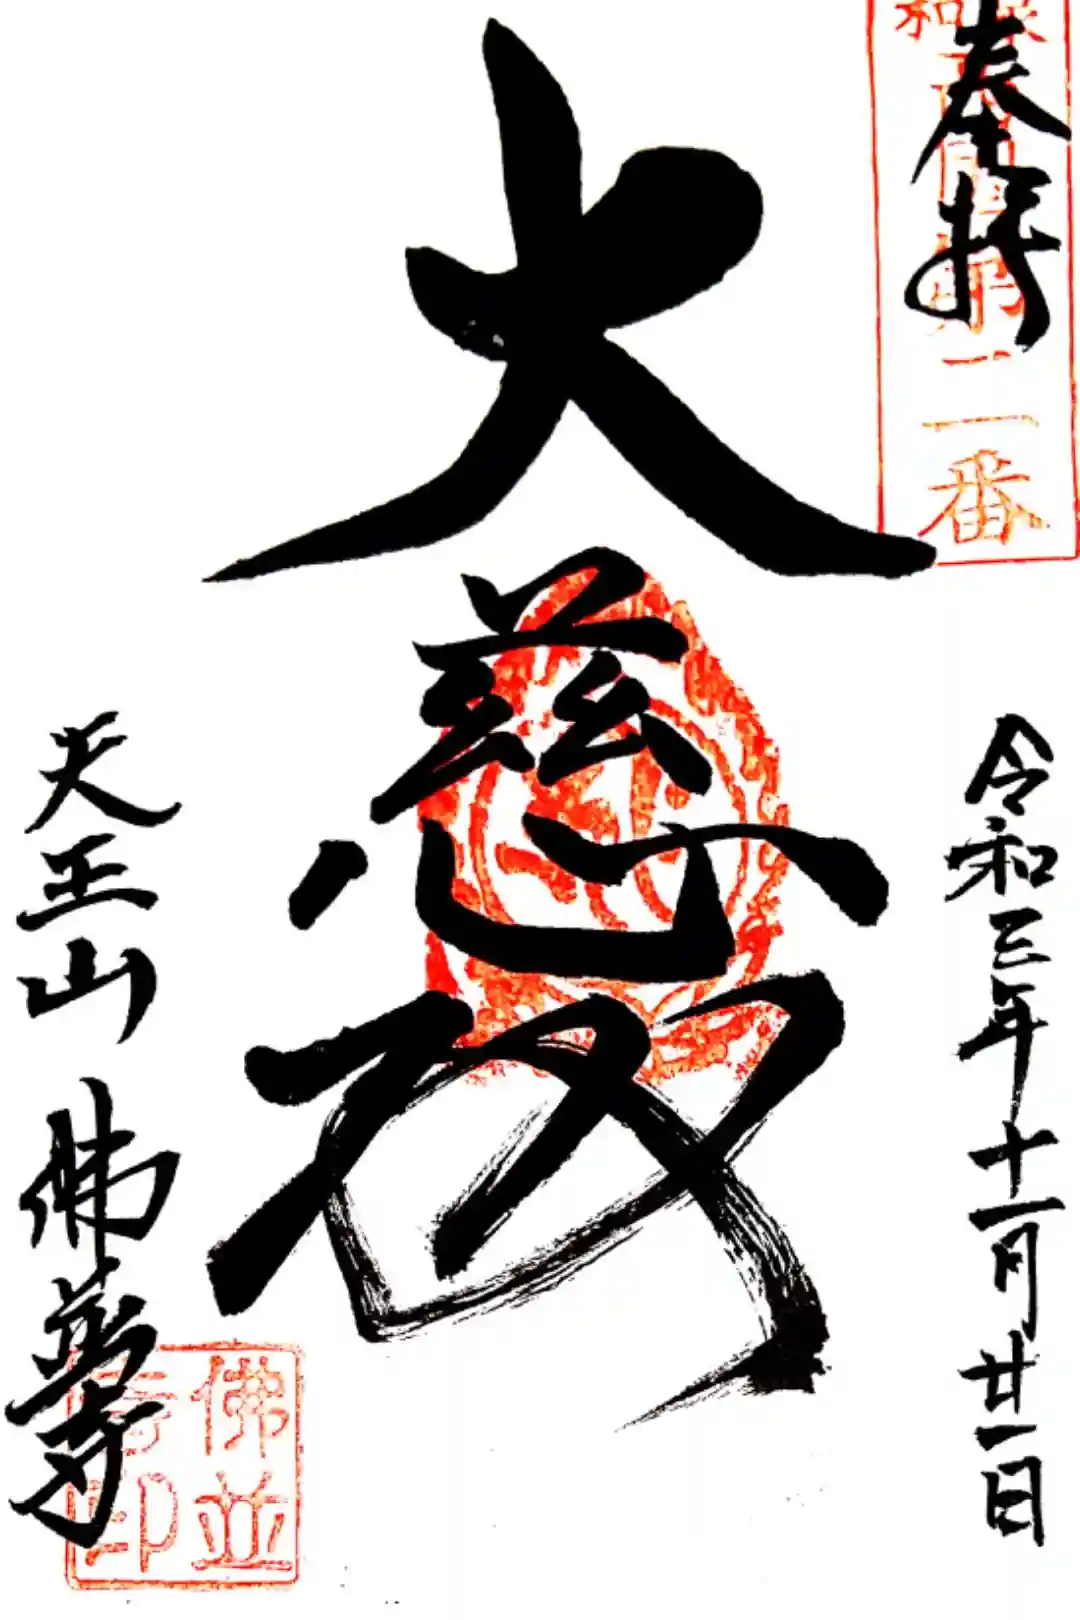 奉拝
令和三年十一月廿一日
第二番
大慈
天王山 佛並寺
佛並
寺印